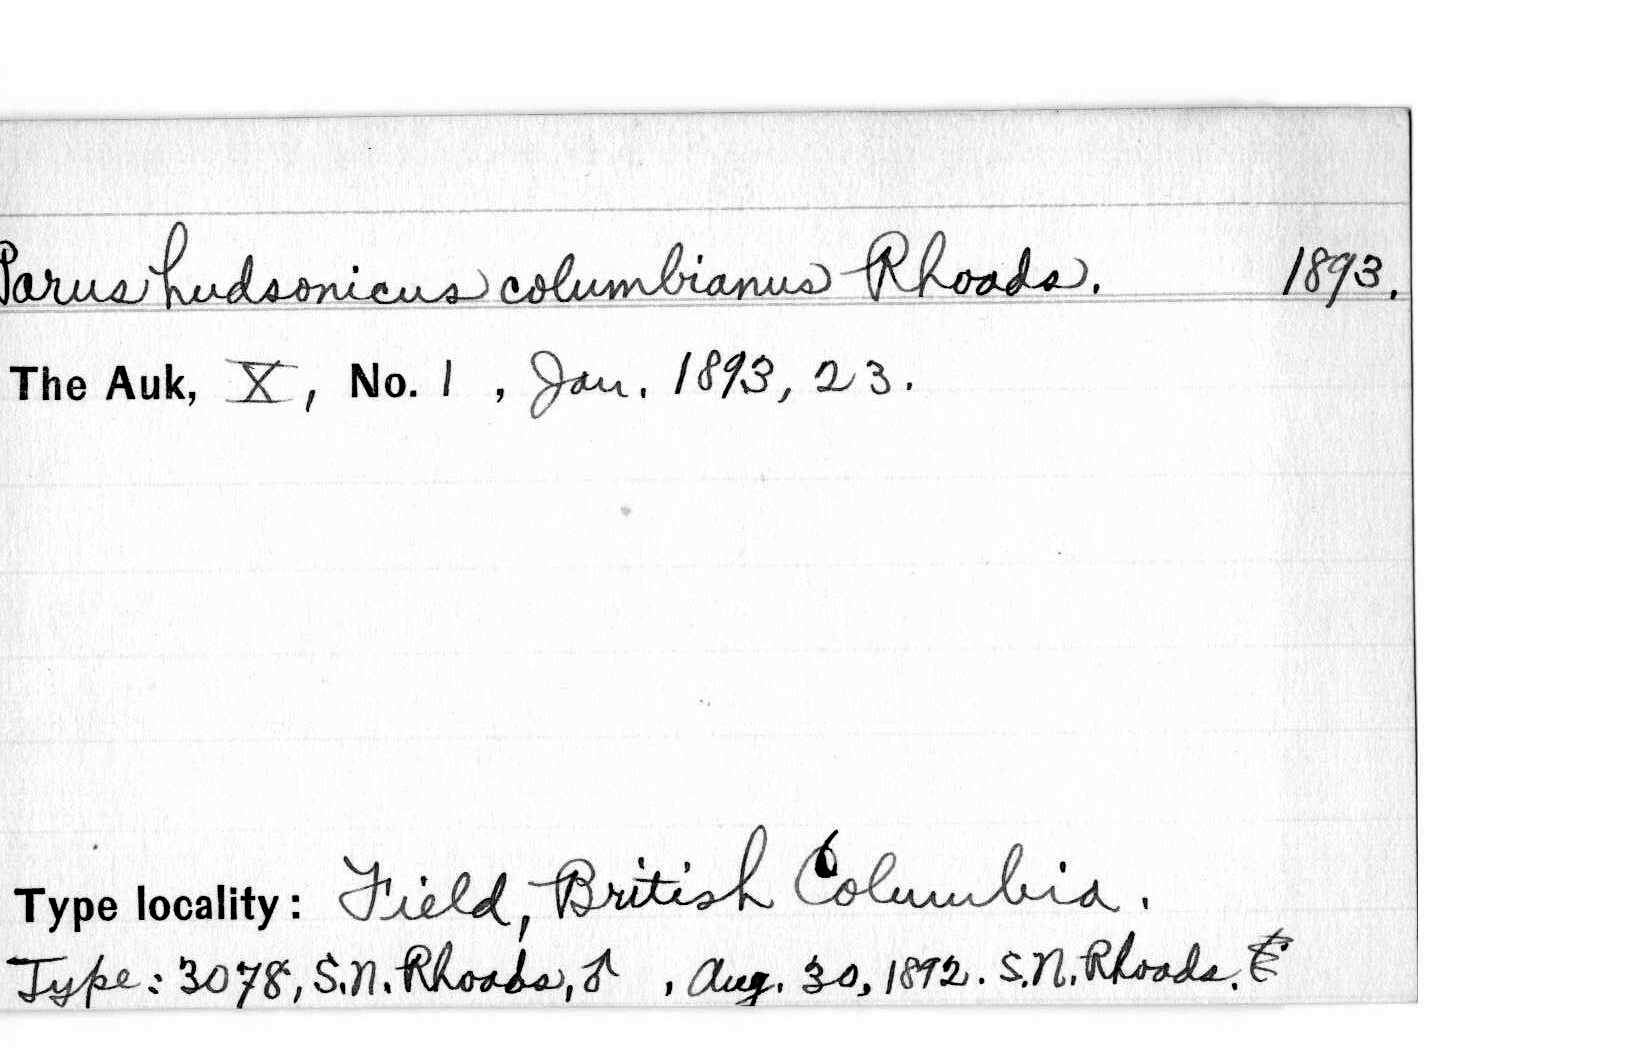 Parus hudsonicus columbianus Rhoads. 1893.
The Auk, X, No. 1, Jan. 1893, 23.
Type locality: Field, British Columbia.
Type: 3078, S.N. Rhoads, ♂, Aug. 30, 1892. S.N. Rhoads.